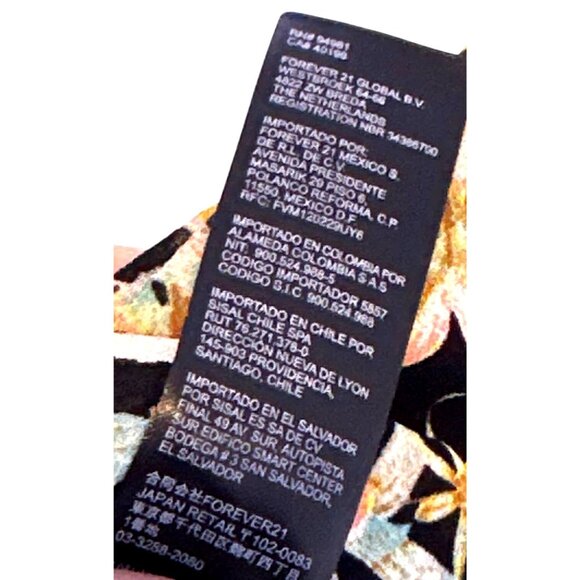 RN# 94981
CA# 40198
FOREVER 21 GLOBAL B.V.
WESTBROEK 64-66
4822 ZW BREDA
THE NETHERLANDS
REGISTRATION NBR 34386790
IMPORTADO POR:
FOREVER 21 MEXICO S.
DE R.L. DE C.V.
AVENIDA PRESIDENTE
MASARIK 29 PISO 6,
POLANCO REFORMA, C.P
11550, MEXICO D.F.
RFC: FVM120229UY6
IMPORTADO EN COLOMBIA POR
ALAMEDA COLOMBIA S A S
NIT. 900.524.988-5
CODIGO IMPORTADOR 5857
CODIGO S.I.C 900.524.988
IMPORTADO EN CHILE POR
SISAL CHILE SPA
RUT 76.271.378-0
DIRECCIÓN NUEVA DE LYON
145-903 PROVIDENCIA,
SANTIAGO, CHILE
IMPORTADO EN EL SALVADOR
POR SISAL ES SA DE CV
FINAL 49 AV. SUR AUTOPISTA
SUR EDIFICO SMART CENTER
BODEGA # 3 SAN SALVADOR,
EL SALVADOR
合同会社FOREVER21
JAPAN RETAIL 〒102-0083
東京都千代田区麹町四丁目
1番地
03-3288-2080